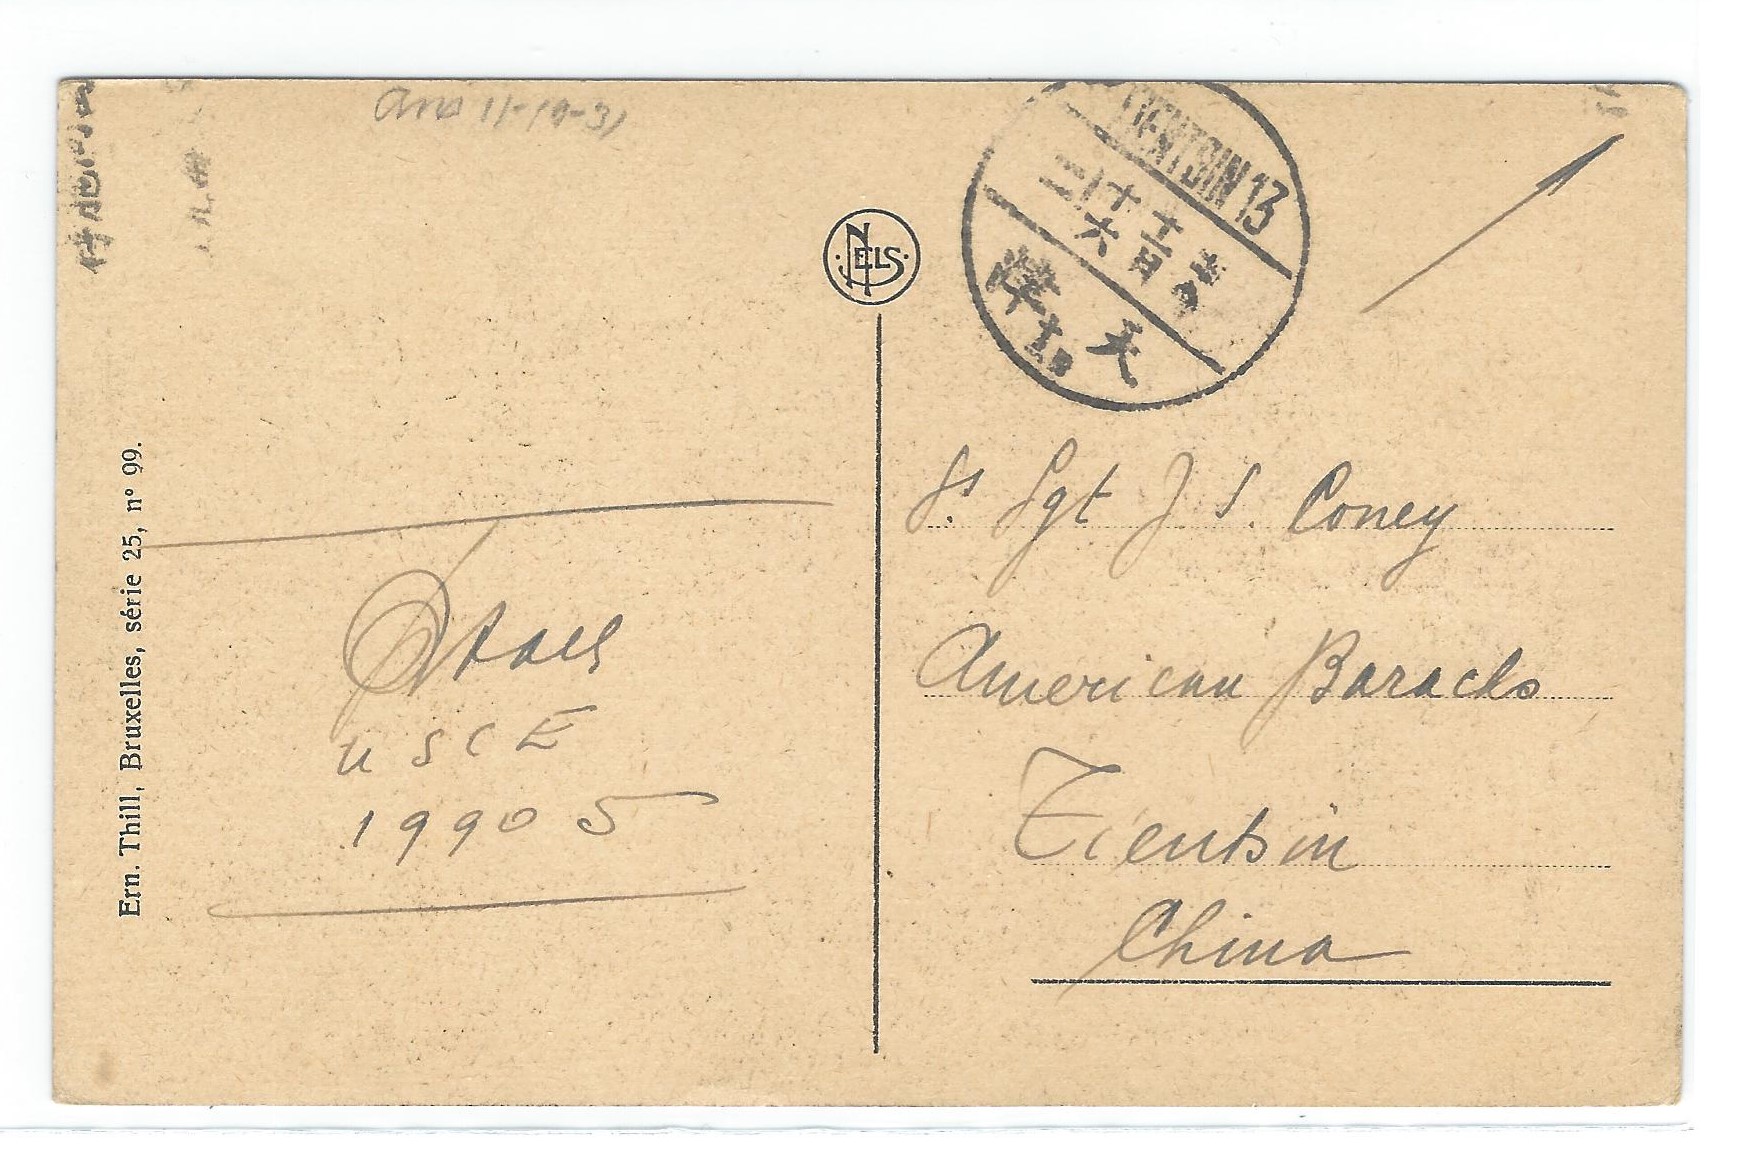 Ans 11-10-31
TIENTSIN 13
十六
十二月
天
津
NELS
Ern. Thill, Bruxelles, série 25, n° 99.
St. Sgt J. S. Coney
American Baracks
Tientsin
China
U S C E
19905